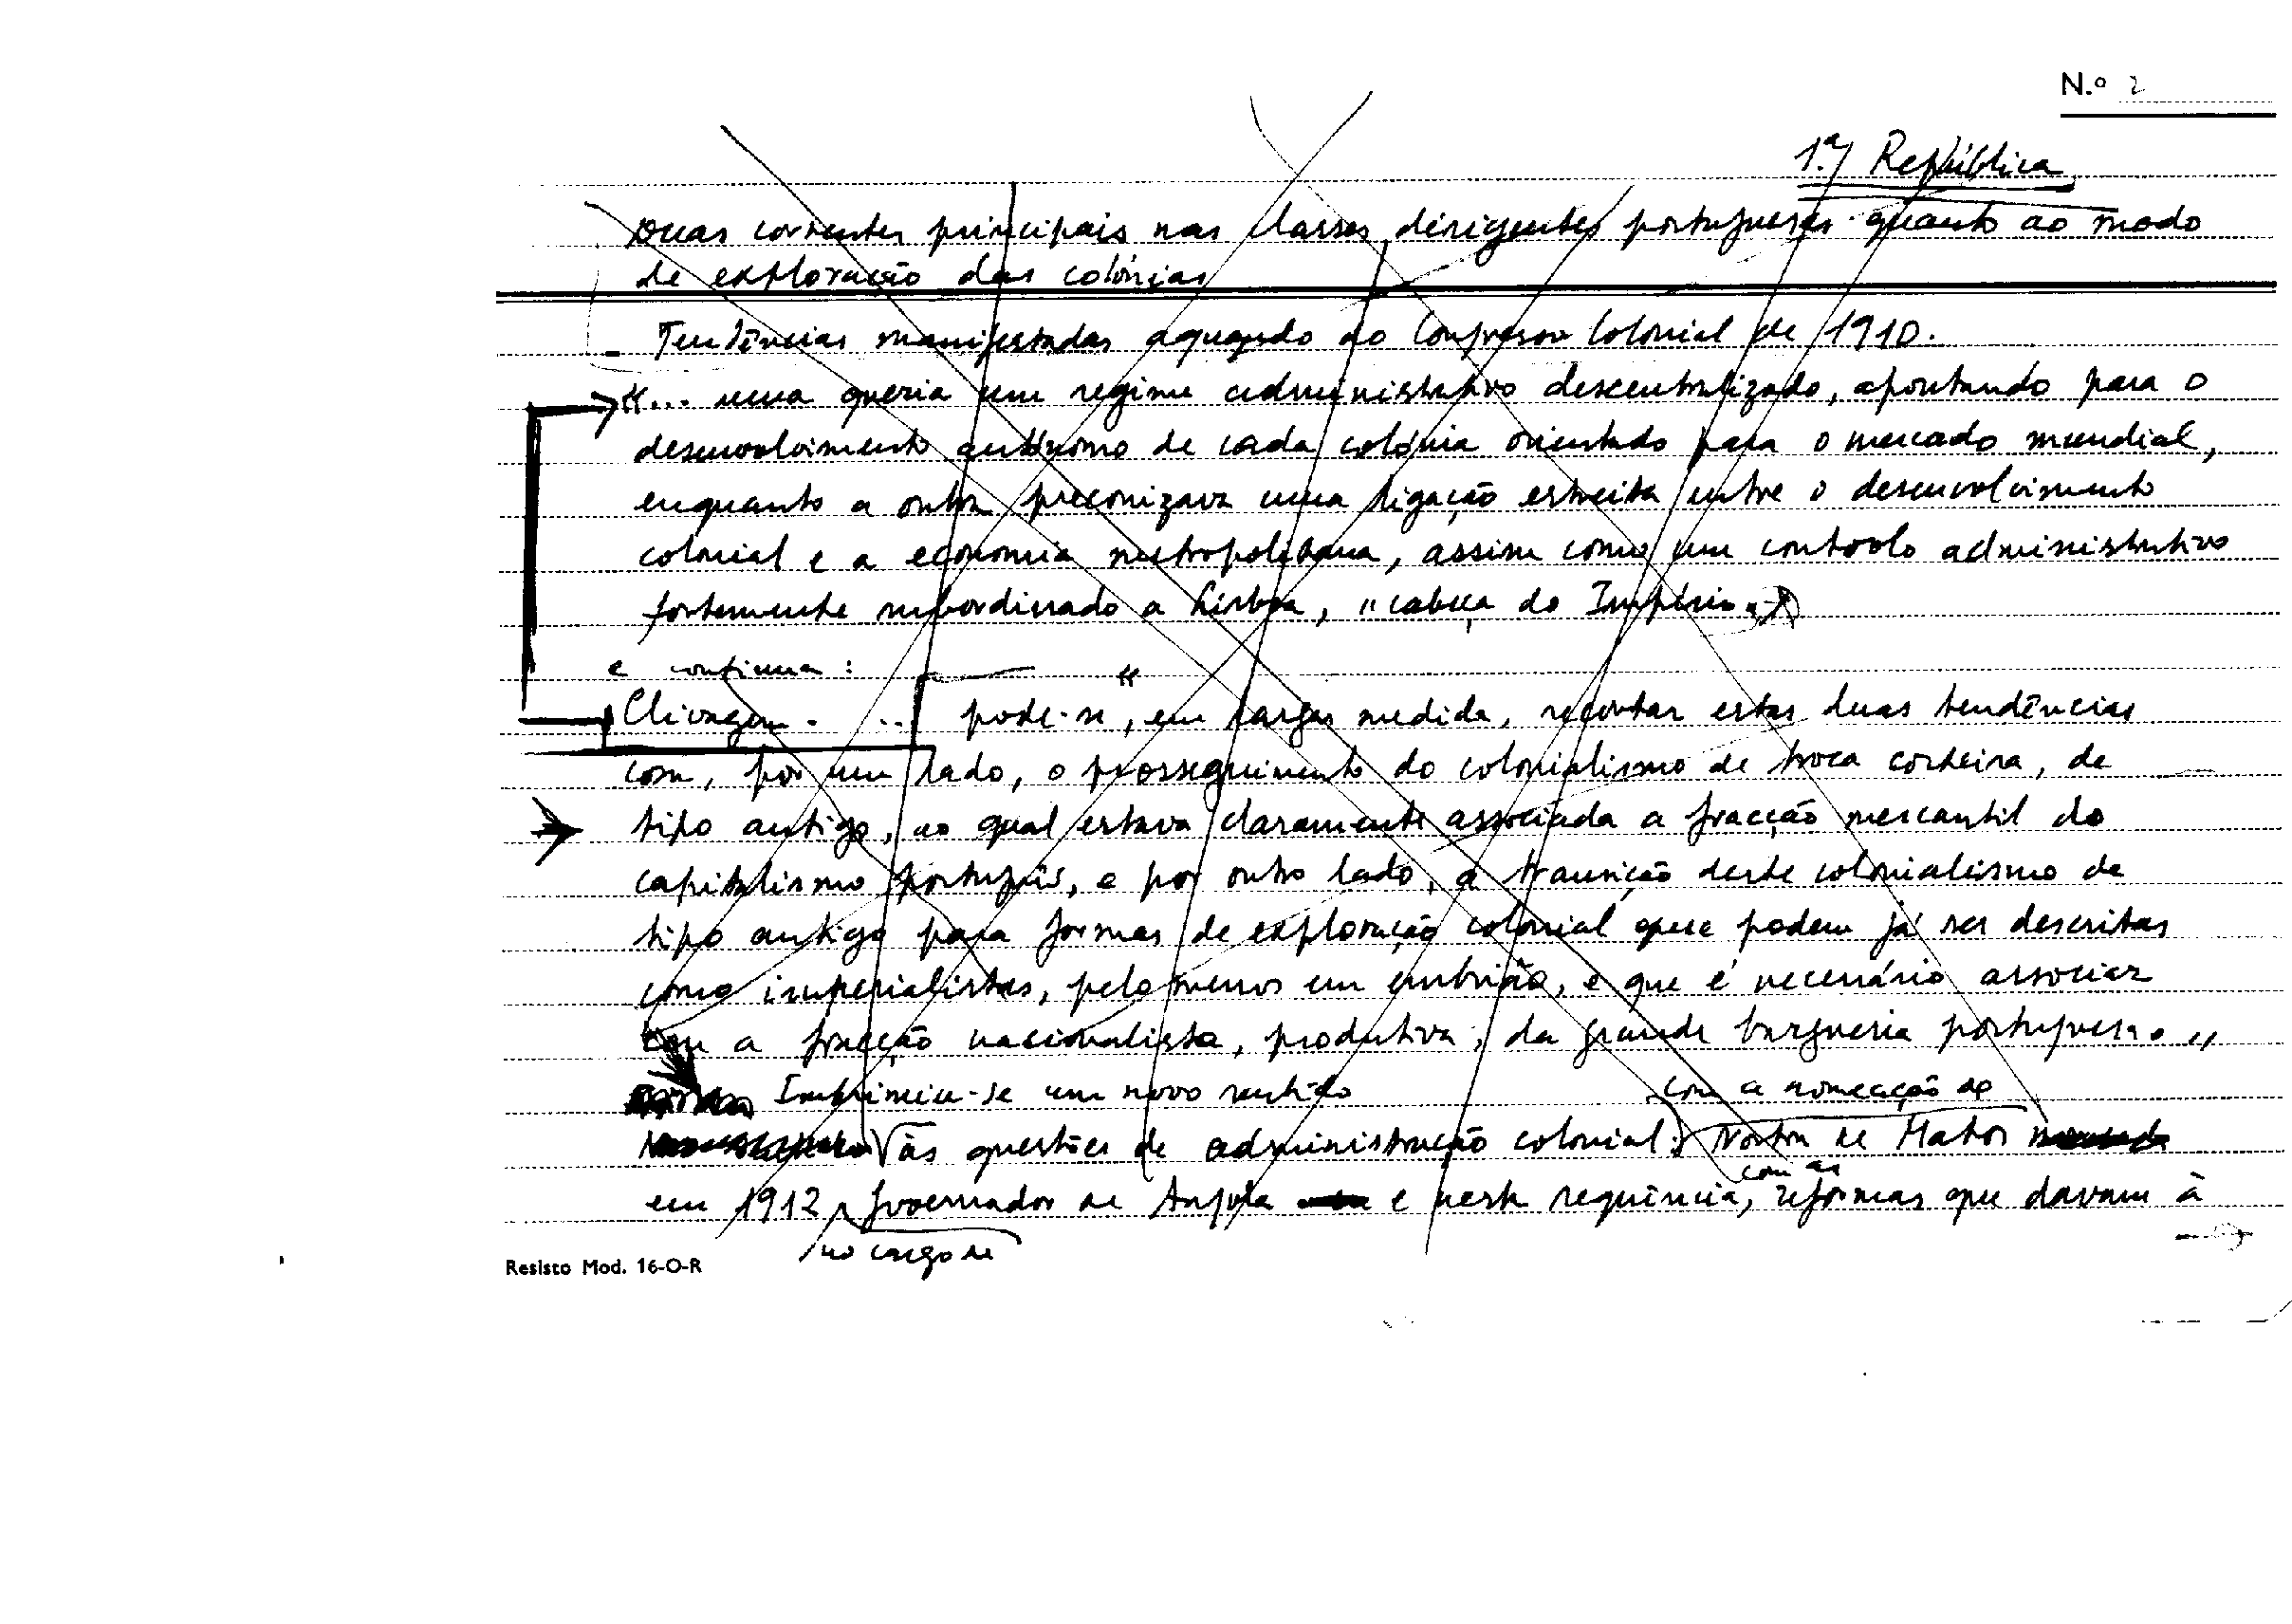 N.º 2
1.ª República
Duas correntes principais nas classes dirigentes portuguesas quanto ao modo
de exploração das colónias
- Tendências manifestadas aquando do Congresso Colonial de 1910.
«... uma queria um regime administrativo descentralizado, apontando para o
desenvolvimento autónomo de cada colónia orientado para o mercado mundial,
enquanto a outra preconizava uma ligação estreita entre o desenvolvimento
colonial e a economia metropolitana, assim como um controlo administrativo
fortemente subordinado a Lisboa, "cabeça do Império"
e continua :
Clivagem. ... « pode-se, em larga medida, recortar estas duas tendências
com, por um lado, o prosseguimento do colonialismo de troca costeira, de
tipo antigo, ao qual estava claramente associada a fracção mercantil do
capitalismo português, e por outro lado, a transição deste colonialismo de
tipo antigo para formas de exploração colonial que podem já ser descritas
como imperialistas, pelo menos em embrião, e que é necessário associar
com a fracção nacionalista, produtiva, da grande burguesia portuguesa. "
Imprimiu-se um novo sentido com a nomeação de
às questões de administração colonial. Norton de Matos
com as
em 1912, Governador de Angola e nesta sequência, reformas que davam à
no cargo de
Resisto Mod. 16-O-R